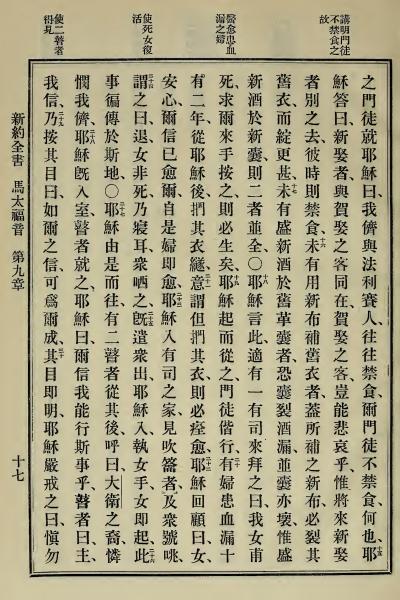 講明門徒
不禁食之
故
醫愈患血
漏之婦
使死女復
活
使二瞽者
得見
之門徒就耶穌曰、我儕與法利賽人、往往禁食、爾門徒不禁食、何也、耶
穌答曰、新娶者與賀娶之客同在、賀娶之客豈能悲哀乎、惟將來新娶
者別之去、彼時則禁食、未有用新布補舊衣者、蓋所補之新布、必裂其
舊衣、而綻更甚、未有盛新酒於舊革囊者、恐囊裂酒漏、並囊亦壞、惟盛
新酒於新囊、則二者並全、○耶穌言此、適有一有司來、拜之曰、我女甫
死、求爾來手按之、則必生矣、耶穌起而從之、門徒偕行、有婦患血漏十
有二年、從耶穌後、捫其衣繸、意謂但捫其衣、則必痊愈、耶穌回顧曰、女
安心、爾信已愈爾、自是婦即愈、耶穌入有司之家、見吹籥者、及衆號咷、
謂之曰、退、女非死、乃寢耳、衆哂之、旣遣衆出、耶穌入、執女手、女即起、此
事徧傳於斯地、○耶穌由是而往、有二瞽者從其後、呼曰、大衛之裔、憐
憫我儕、耶穌旣入室、瞽者就之、耶穌曰、爾信我能行斯事乎、瞽者曰、主、
我信、乃按其目曰、如爾之信、可爲爾成、其目即明、耶穌嚴戒之曰、愼勿
新約全書 馬太福音 第九章 十七